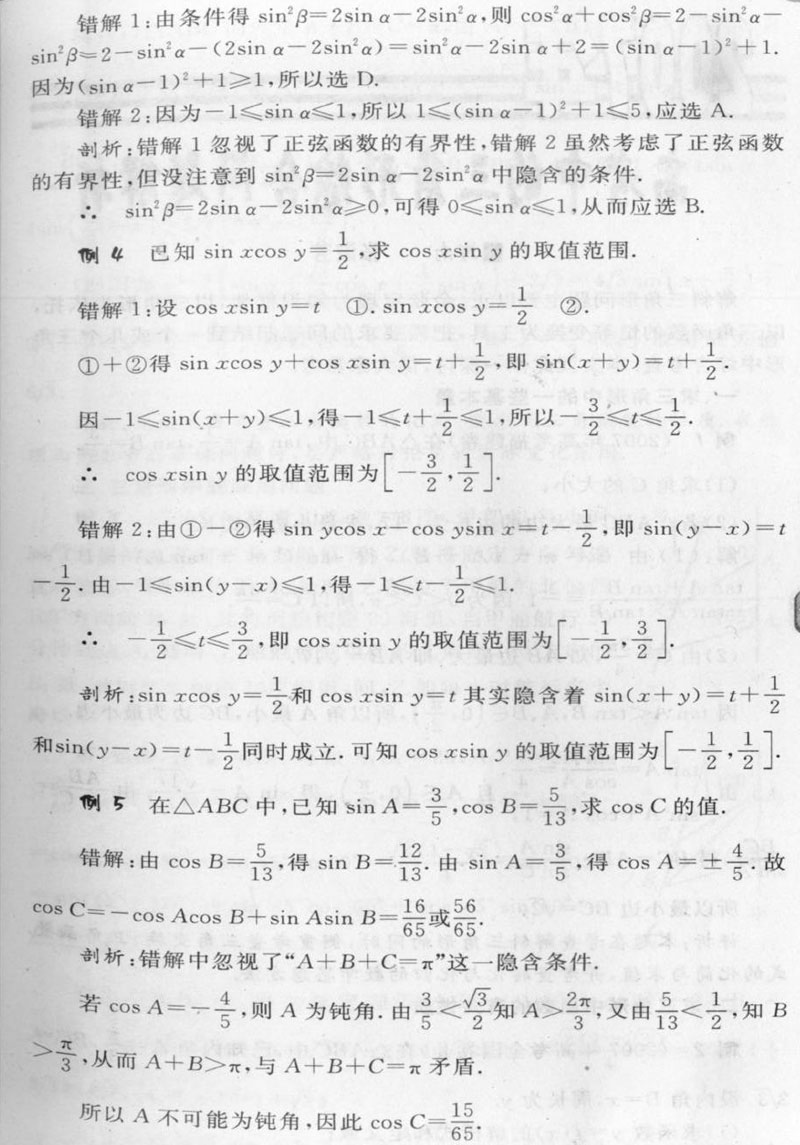 错解 1:由条件得 sin²β=2sin α-2sin²α,则 cos²α+cos²β=2-sin²α-
sin²β=2-sin²α-(2sin α-2sin²α)=sin²α-2sin α+2=(sin α-1)²+1.
因为(sin α-1)²+1≥1,所以选 D.
错解 2:因为-1≤sin α≤1,所以 1≤(sin α-1)²+1≤5,应选 A.
剖析:错解 1 忽视了正弦函数的有界性,错解 2 虽然考虑了正弦函数
的有界性,但没注意到 sin²β=2sin α-2sin²α 中隐含的条件.
∴ sin²β=2sin α-2sin²α≥0,可得 0≤sin α≤1,从而应选 B.
例 4 已知 sin xcos y=1/2,求 cos xsin y 的取值范围.
错解 1:设 cos xsin y=t ①. sin xcos y=1/2 ②.
①+②得 sin xcos y+cos xsin y=t+1/2,即 sin(x+y)=t+1/2.
因-1≤sin(x+y)≤1,得-1≤t+1/2≤1,所以-3/2≤t≤1/2.
∴ cos xsin y 的取值范围为[-3/2,1/2].
错解 2:由①-②得 sin ycos x-cos ysin x=t-1/2,即 sin(y-x)=t
-1/2.由-1≤sin(y-x)≤1,得-1≤t-1/2≤1.
∴ -1/2≤t≤3/2,即 cos xsin y 的取值范围为[-1/2,3/2].
剖析:sin xcos y=1/2和 cos xsin y=t 其实隐含着 sin(x+y)=t+1/2
和sin(y-x)=t-1/2同时成立.可知 cos xsin y 的取值范围为[-1/2,1/2].
例 5 在△ABC 中,已知 sin A=3/5,cos B=5/13,求 cos C 的值.
错解:由 cos B=5/13,得 sin B=12/13.由 sin A=3/5,得 cos A=±4/5.故
cos C=-cos Acos B+sin Asin B=16/65或56/65.
剖析:错解中忽视了“A+B+C=π”这一隐含条件.
若 cos A=-4/5,则 A 为钝角.由3/5<√3/2知 A>2π/3,又由5/13<1/2,知 B
>π/3,从而 A+B>π,与 A+B+C=π 矛盾.
所以 A 不可能为钝角,因此 cos C=15/65.